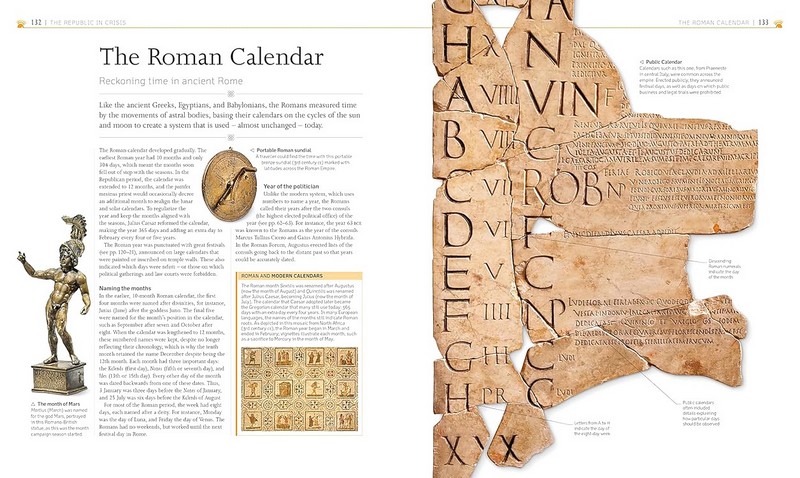 132 | THE REPUBLIC IN CRISIS
The Roman Calendar
Reckoning time in ancient Rome
Like the ancient Greeks, Egyptians, and Babylonians, the Romans measured time
by the movements of astral bodies, basing their calendars on the cycles of the sun
and moon to create a system that is used – almost unchanged – today.
The Roman calendar developed gradually. The
earliest Roman year had 10 months and only
304 days, which meant the months soon
fell out of step with the seasons. In the
Republican period, the calendar was
extended to 12 months, and the pontifex
maximus priest would occasionally decree
an additional month to realign the lunar
and solar calendars. To regularize the
year and keep the months aligned with
the seasons, Julius Caesar reformed the calendar,
making the year 365 days and adding an extra day to
February every four or five years.
The Roman year was punctuated with great festivals
(see pp. 120–21), announced on large calendars that
were painted or inscribed on temple walls. These also
indicated which days were nefas – on those on which
political gatherings and law courts were forbidden.
Naming the months
In the earlier, 10-month Roman calendar, the first
four months were named after divinities, for instance,
Junius (June) after the goddess Juno. The final five
were named for the month's position in the calendar,
such as September after seven and October after
eight. When the calendar was lengthened to 12 months,
these numbered names were kept, despite no longer
reflecting their chronology, which is why the tenth
month retained the name December despite being the
12th month. Each month had three important days:
the Kalends (first day), Nones (fifth or seventh day), and
Ides (13th or 15th day). Every other day of the month
was dated backwards from one of these dates. Thus,
3 January was three days before the Nones of January,
and 25 July was six days before the Kalends of August.
For most of the Roman period, the week had eight
days, each named after a deity. For instance, Monday
was the day of Luna, and Friday the day of Venus. The
Romans had no weekends, but worked until the next
festival day in Rome.
△ The month of Mars
Martius (March) was named
for the god Mars, portrayed
in this Romano-British
statue, as this was the month
campaign season started.
◁ Portable Roman sundial
A traveller could find the time with this portable
bronze sundial (3rd century CE) marked with
latitudes across the Roman Empire.
Year of the politician
Unlike the modern system, which uses
numbers to name a year, the Romans
called their years after the two consuls
(the highest elected political office) of the
year (see pp. 62–63). For instance, the year 63 BCE
was known to the Romans as the year of the consuls
Marcus Tullius Cicero and Gaius Antonius Hybrida.
In the Roman Forum, Augustus erected lists of the
consuls going back to the distant past so that years
could be accurately dated.
ROMAN AND MODERN CALENDARS
The Roman month Sextilis was renamed after Augustus
(now the month of August) and Quintilis was renamed
after Julius Caesar, becoming Julius (now the month of
July). The calendar that Caesar adopted later became
the Gregorian calendar that many still use today: 365
days with an extra day every four years. In many European
languages, the names of the months still indicate Roman
roots. As depicted in this mosaic from North Africa
(3rd century CE), the Roman year began in March and
ended in February; vignettes illustrate each month, such
as a sacrifice to Mercury in the month of May.
THE ROMAN CALENDAR | 133
◁ Public Calendar
Calendars such as this one, from Praeneste
in central Italy, were common across the
empire. Erected publicly, they announced
festival days, as well as days on which public
business and legal trials were prohibited.
H X N
A VIIII VIN F
B VIII C
C VII ROB N
D C
E F
F IIII NP
G III C
H PR C
XXX
Descending
Roman numerals
indicate the day
of the month
Public calendars
often included
details explaining
how particular days
should be observed
Letters from A to H
indicate the day of
the eight-day week